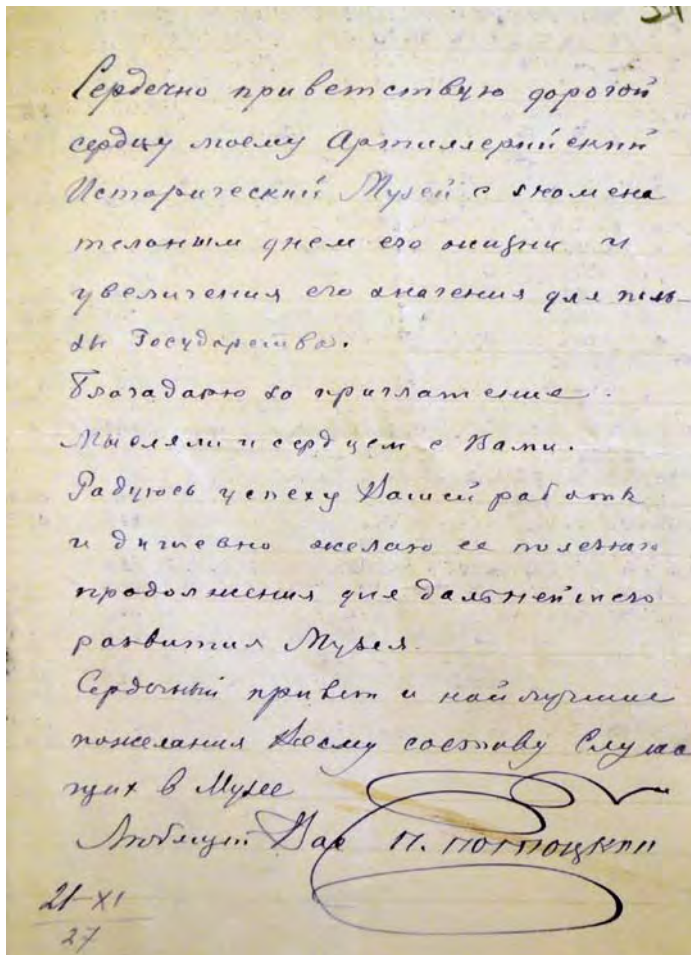 Сердечно приветствую дорогой
сердцу моему Артиллерийский
Исторический Музей с знамена
тельным днем его жизни и
увеличения его значения для поль-
зы Государства.
Благодарю за приглашение.
Мыслями и сердцем с Вами.
Радуюсь успеху Вашей работы
и душевно желаю ее полезнаго
продолжения для дальнейшего
развития Музея.
Сердечный привет и наилучшие
пожелания Всему составу Служа
щих в Музее
Любящий Вас П. Потоцкий
21-XI
27